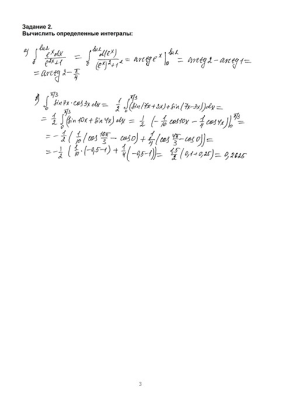 Задание 2.
Вычислить определенные интегралы:
а) ∫₀^{ln2} e^x dx / (e^{2x}+1) = ∫₀^{ln2} d(e^x) / ((e^x)²+1) = arctg e^x |₀^{ln2} = arctg 2 - arctg 1 =
= arctg 2 - π/4
∫₀^{π/3} sin7x · cos3x dx = 1/2 ∫₀^{π/3} (sin(7x+3x)+sin(7x-3x))dx =
= 1/2 ∫₀^{π/3} (sin10x + sin4x) dx = 1/2 (-1/10 cos10x - 1/4 cos4x)|₀^{π/3} =
= -1/2 (1/10 (cos 10π/3 - cos0) + 1/4 (cos 4π/3 - cos0)) =
= -1/2 (1/10 · (-0,5-1) + 1/4 (-0,5-1)) = 1,5/2 (0,1+0,25) = 0,2625
3